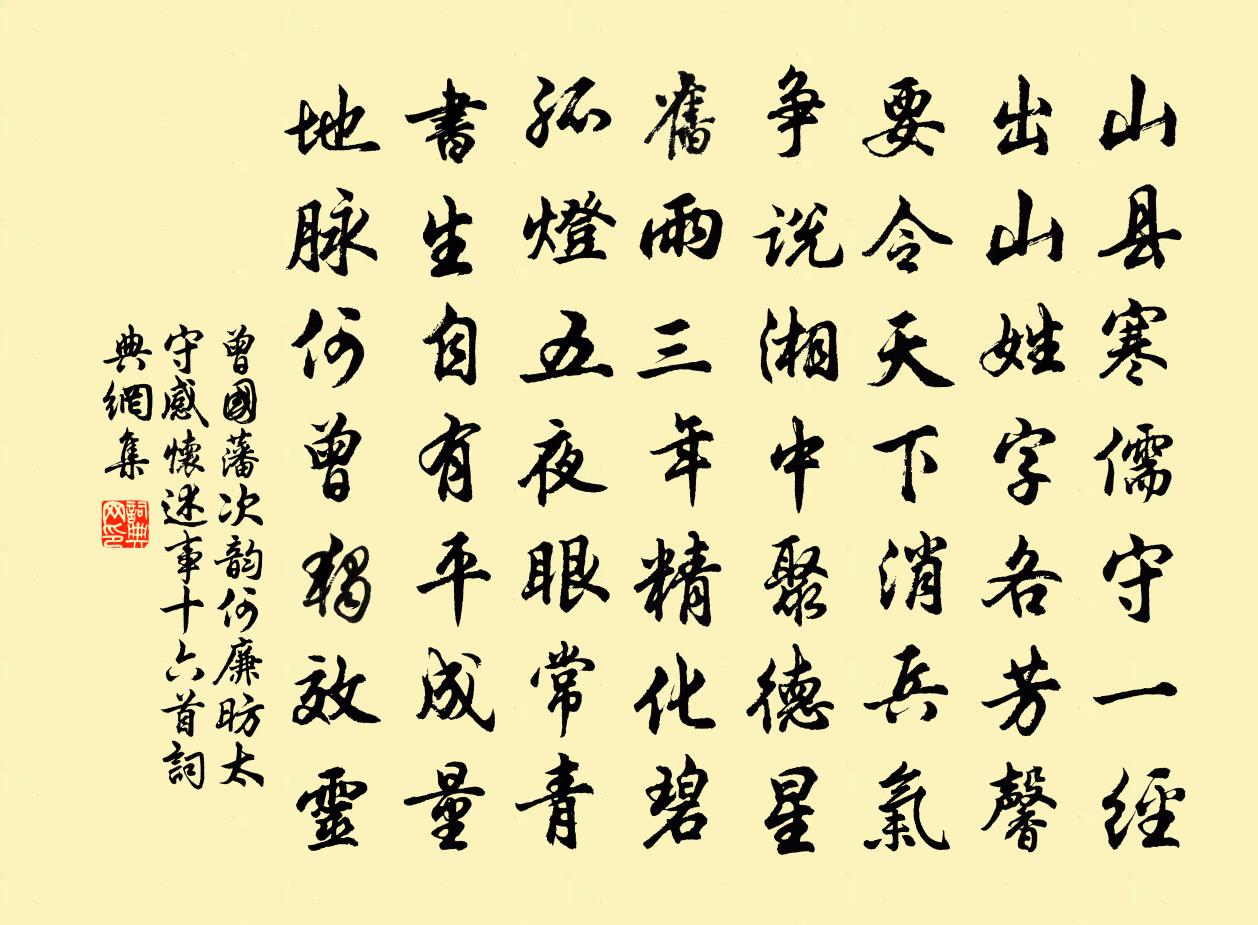 山县寒儒守一经
出山姓字各芳馨
要令天下消兵氣
争说湘中聚德星
舊雨三年精化碧
孤燈五夜眼常青
書生自有平成量
地脉何曾独效靈
曾國藩次韵何廉昉太
守感懷述事十六首詞
典網集
詞典
网印